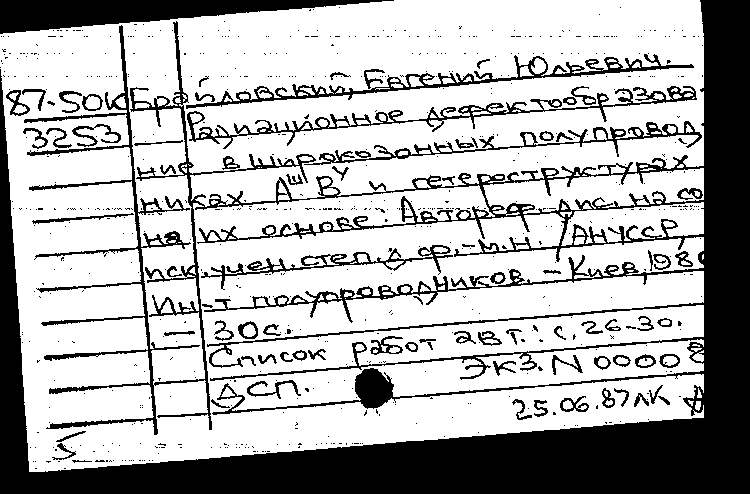 87-50К Брайловский, Евгений Юльевич.
3253 Радиационное дефектообразова-
ние в широкозонных полупровод-
никах AᴵᴵᴵBⱽ и гетероструктурах
на их основе: Автореф. дис. на со
иск. учен. степ. д. ф.-м.н. / АН УССР,
Ин-т полупроводников. - Киев, 198
- 30 с.
Список работ авт.: с. 26-30.
ДСП. Экз. N 00008
25.06.87 ЛК
5